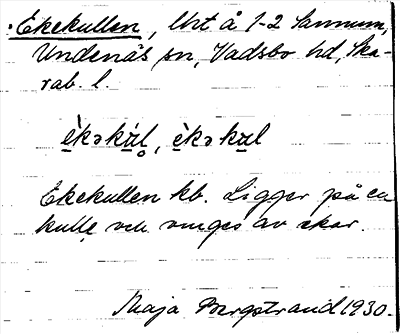 Ekekullen, lht å 1-2 Sannum,
Undenäs sn, Vadsbo hd, Ska-
rab. l.
èkəkùl, èkəkul
Ekekullen kb. Ligger på en
kulle och omges av ekar.
Maja Bergstrand 1930.